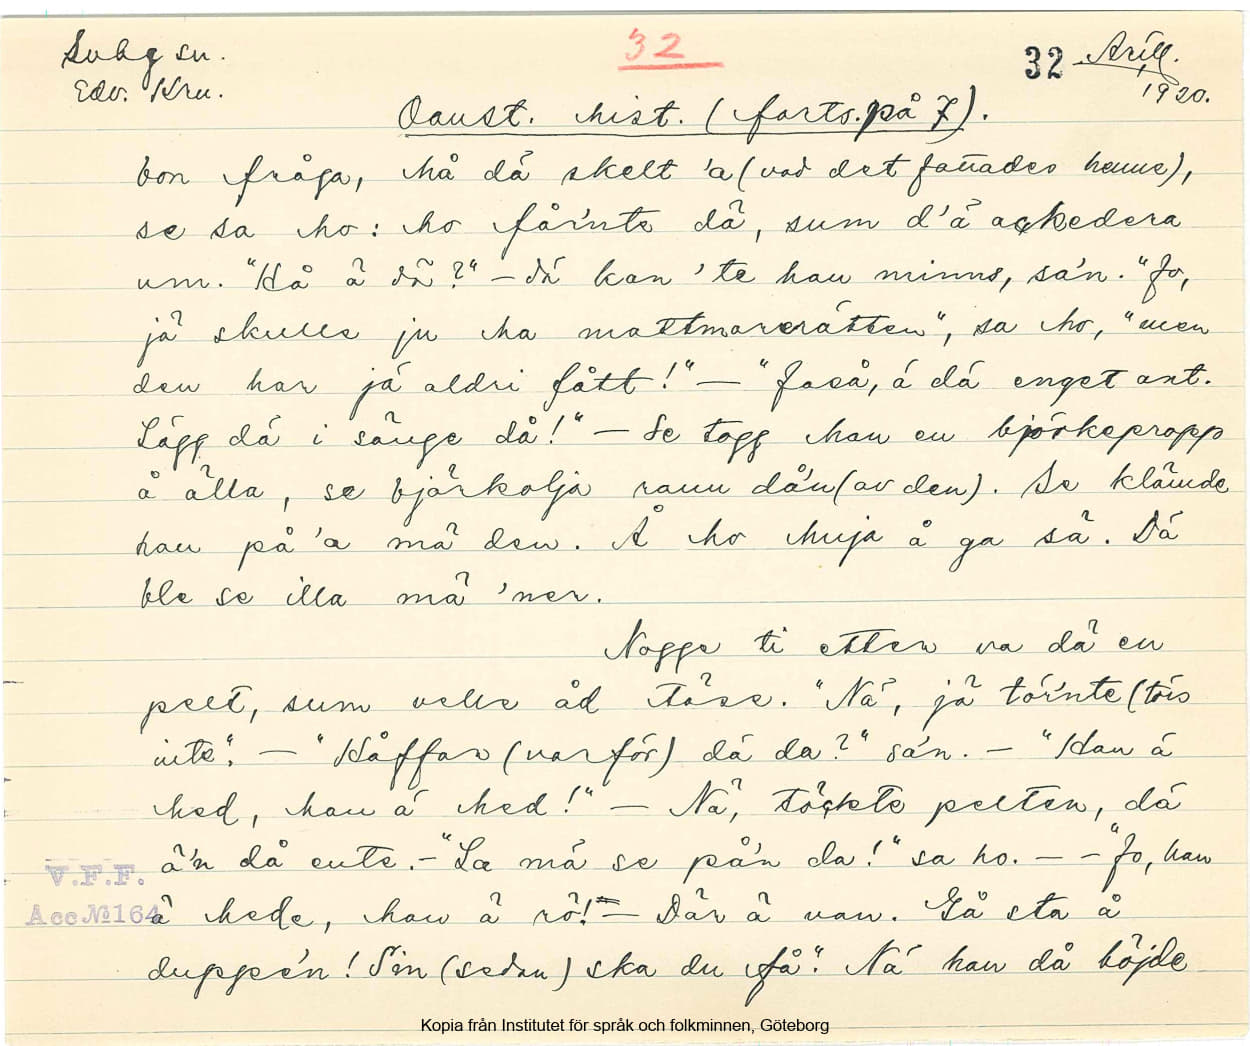 Subg sn.
Edv. Kru.
32
32
Arill.
1920.
Oanst. hist. (forts. på 7).
bon fråga, hå dä skelt 'a (vad det fattades henne),
se sa ho: ho får'nte dä, sum d'ä ackedera
um. "Hå ä dä?" – dä kan 'te hau minns, sa'n. "Jo,
jä skulle ju ha mattmorerätten", sa ho, "men
den har jä aldri fått!" — "Jaså, ä dä enget ant.
Lägg dä i sänge då!" — Se togg han en björkepropp
å älla, se björkolja rann då'n (av den). Se klämde
han på 'a mä den. Å ho huja å ga sä. Dä
ble se illa mä 'ner.
Nogge ti etter va dä en
pelt, sum velle åd töse. "Nä, jä tör'nte (törs
inte". — "Håffar (varför) dä da?" sa'n. — "Han ä
hed, han ä hed!" — Nä, töckte pelten, dä
ä'n då ente. – "La mä se på'n da!" sa ho. — – "Jo, han
ä hede, han ä rö!" — Där ä van. Gå sta å
duppe'n! Sin (sedan) ska du få". Nä han då böjde
V.F.F.
Acc № 164
Kopia från Institutet för språk och folkminnen, Göteborg